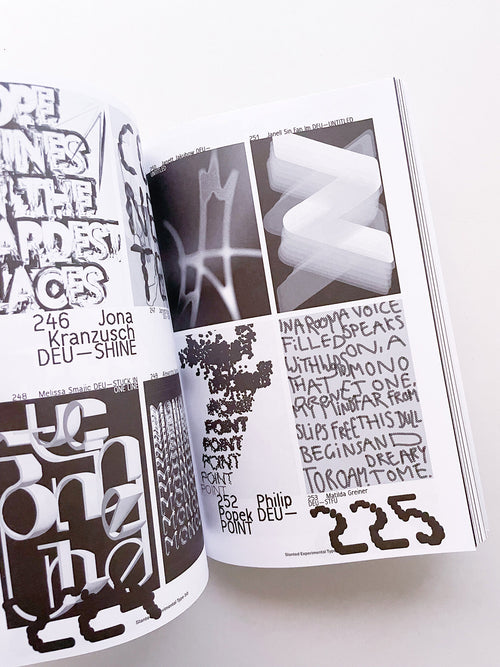 OPE
INES
THE
ARDEST
LACES
246 Jona
Kranzusch
DEU—SHINE
247
248 Melissa Smajic DEU—STUCK IN
ONE LINE
249
DEU—
251 Janell Sin Fan Im DEU—UNTITLED
POINT
POINT
POINT
POINT
POINT
POINT
252 Philip
Popek DEU—
POINT
IN A ROOM A VOICE
FILLED SPEAKS
WITH ON, A
MONO
THAT ONE.
DRONE
MY MIND FAR FROM
SLIPS FREE THIS DULL
BEGINS AND
DREARY
TO ROAM TOME.
253 Matilda Greiner
DEU—STFU
225
Slanted Experimental Type
Slanted Experimental Type